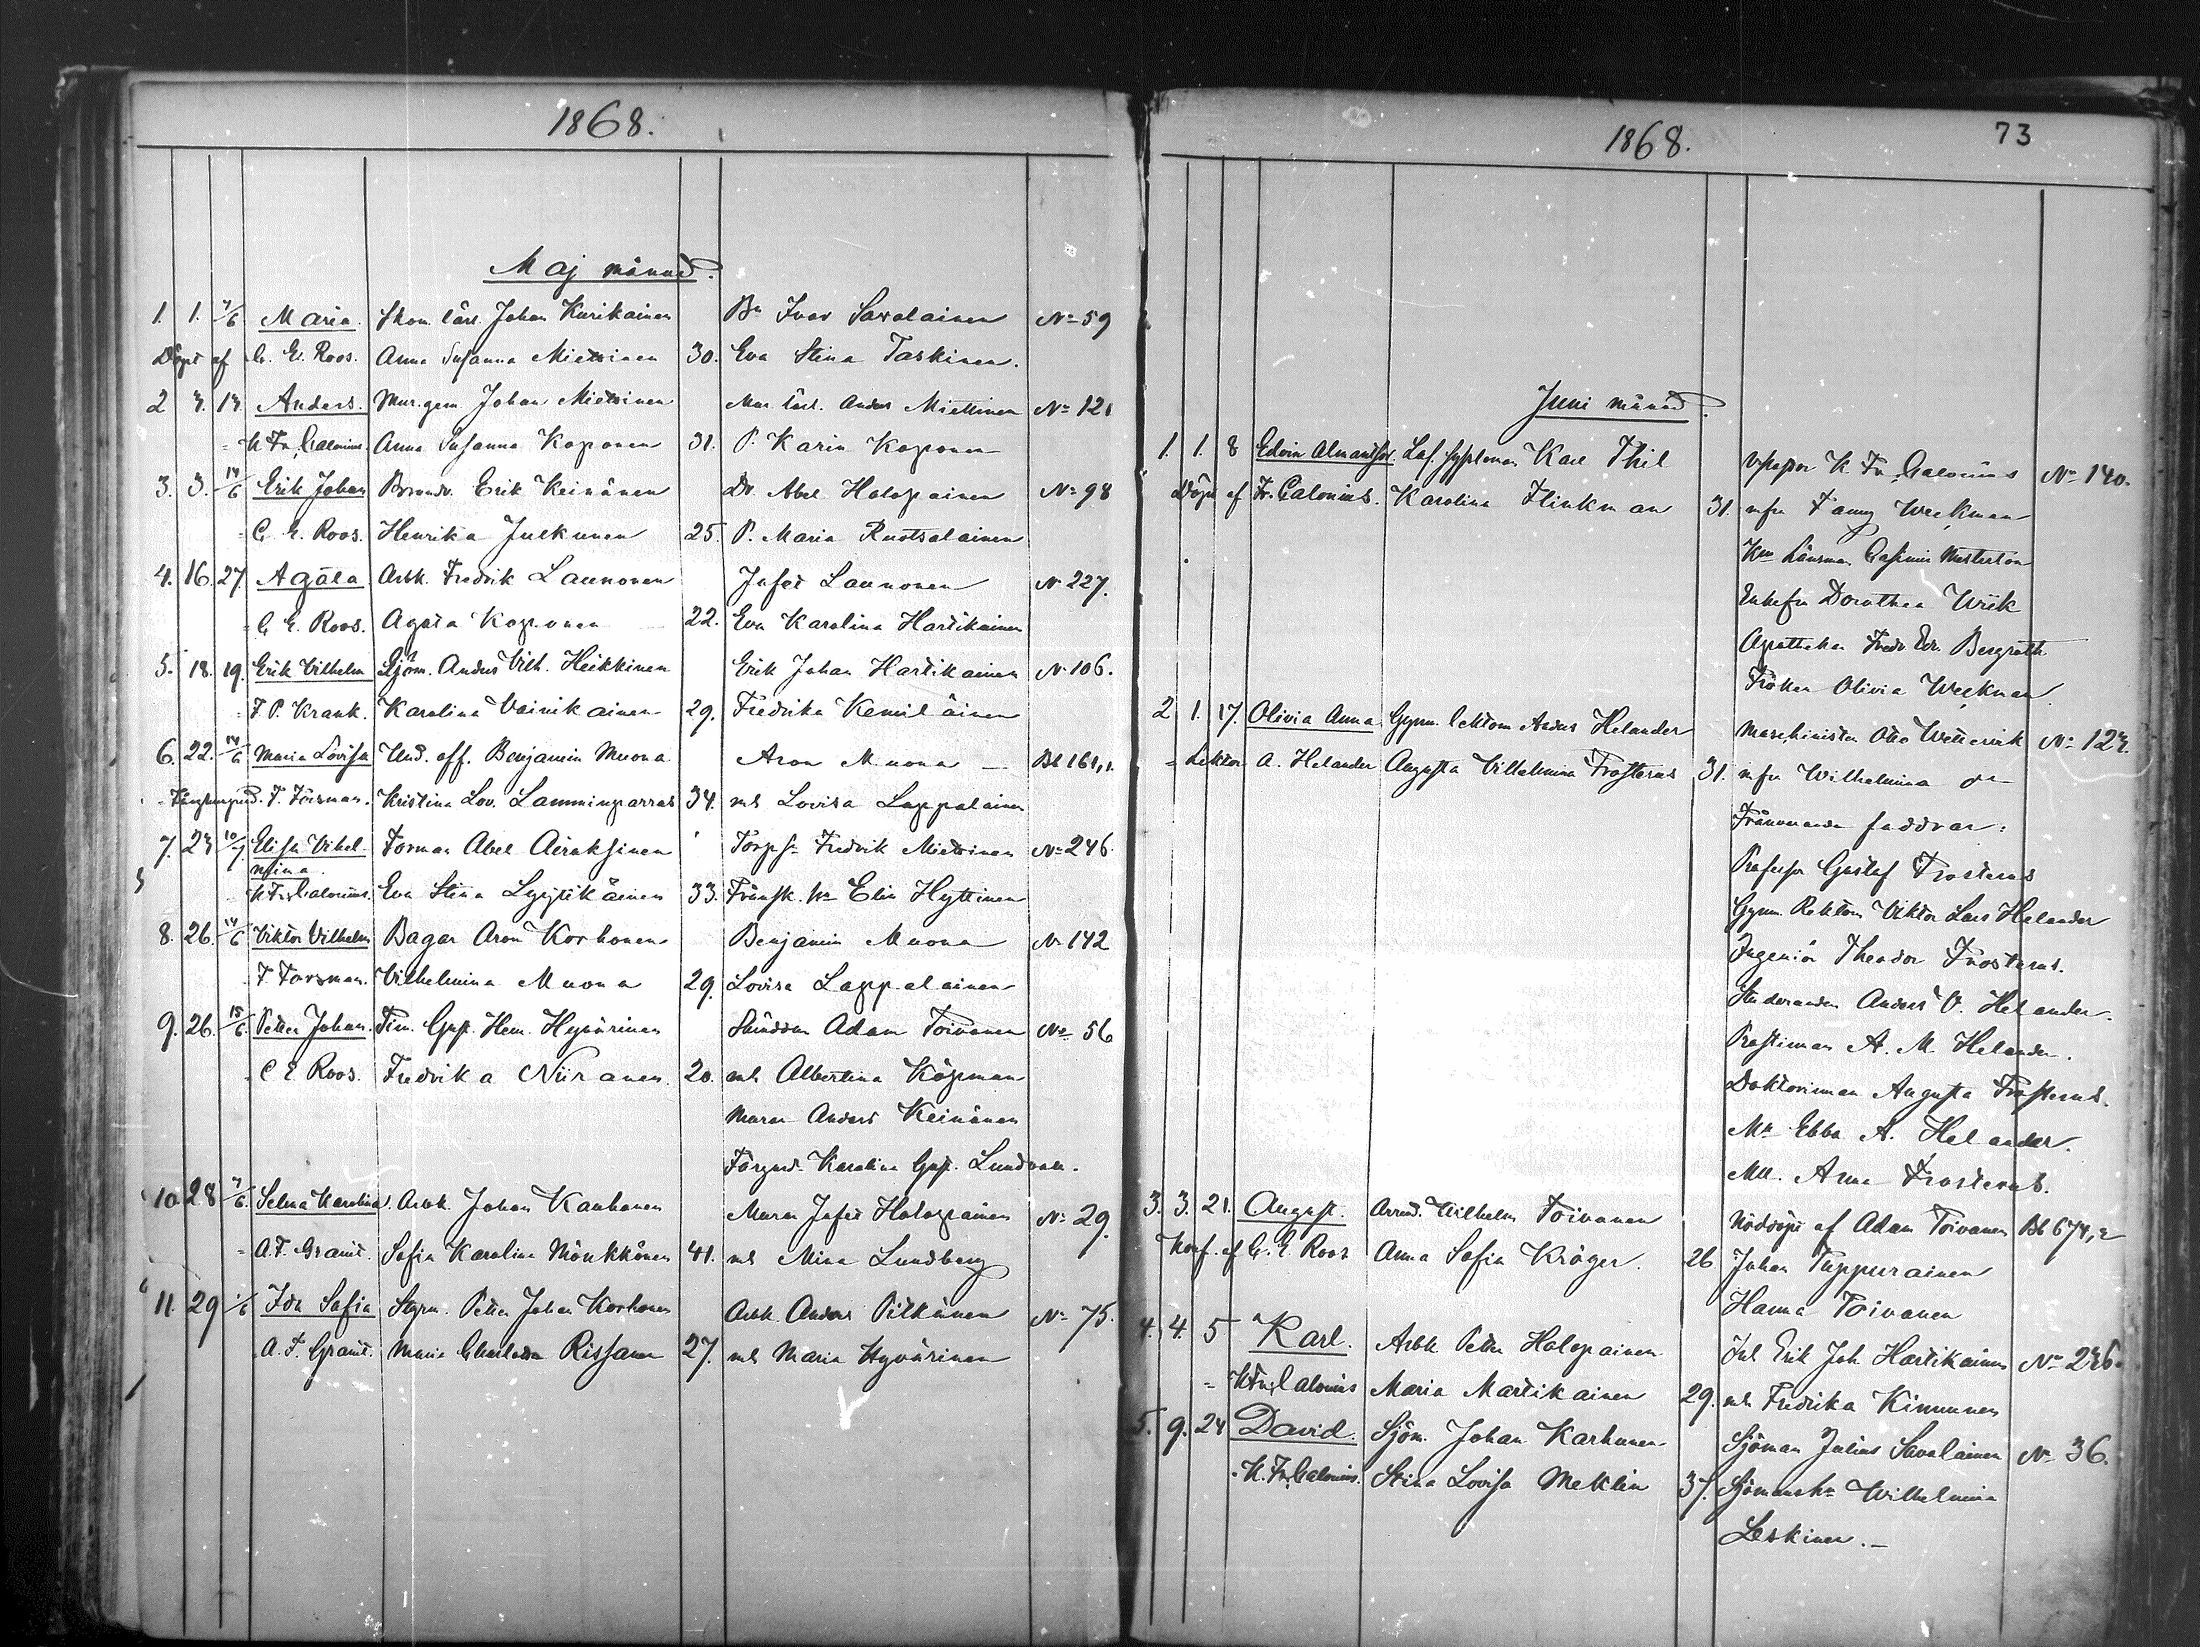 1868.
Maj månad.
1. 1. 7/6 Maria. Skom. lärl. Johan Kurikainen Bn Ivar Savolainen No 59
Döpt af C. E. Roos. Anna Susanna Miettinen 30. Eva Stina Taskinen.
2 4. 14 Anders. Mur.gem. Johan Miettinen Mur. lärl. Anders Miettinen No 121
K Fr. Calonius. Anna Susanna Koponen 31. P. Karin Koponen
3. 3. 14/6 Erik Johan Brandv. Erik Keinänen Dr. Abel Holopainen No 98
C. E. Roos. Henrika Julkunen 25. P. Maria Ruotsalainen
4. 16. 27. Agata Arbk. Fredrik Launonen Josef Launonen No 227.
C. E. Roos. Agata Koponen 22. Eva Karolina Hartikainen
5. 18. 19. Erik Vilhelm Sjöm. Anders Vilh. Heikkinen Erik Johan Hartikainen No 106.
F. P. Krank. Karolina Vainikainen 29. Fredrika Kemiläinen
6. 22. 14/6 Maria Lovisa Und. off. Benjamin Muona Aron Muona — Bl 161,1.
F. Forsman. Kristina Lov. Lamminparras 34. mh Lovisa Lappalainen
7. 24 10/7 Elisa Vilhel- Forman Abel Airaksinen Torpsn Fredrik Miettinen No 246.
mina.
K Fr. Calonius. Eva Stina Lyytikäinen 33. Elin Hyttinen
8. 26. 14/6 Viktor Vilhelm Bagar Aron Korhonen Benjamin Muona No 142
F Forsman. Vilhelmina Muona 29. Lovisa Lappalainen
9. 26. 15/6 Petter Johan Tim. Ges. Hem. Hyvärinen Adam Toivanen No 56
C E Roos. Fredrika Niiranen. 20. mh Albertina Köpman
Murar Anders Keinänen
Karolina Lundvall.
10. 28 7/6. Selma Karolina. Arbk. Johan Kauhanen Murar Josef Holopainen No 29.
A. F. Granit. Sofia Karolina Mönkkönen 41. mh Mina Lundberg
11. 29 1/6 Ida Sofia Styrm. Petter Johan Korhonen Arbk. Anders Pitkänen No 75.
A. F. Granit. Maria Charlotta Rissanen 27. mh Maria Hyvärinen
1868. 73
Juni månad.
1. 1. 8 Edvin Almantsor. Karl Thil K Fr. Calonius No 140.
Döpt af Fr. Calonius. Karolina Flinkman 31. mfru Fanny Weckman
Kn Länsman Casimir Masterton
Enkefru Dorothea Wiik
Apotheker Fredr. Edv. Bergroth
Fröken Olivia Weckman
2 1. 17. Olivia Anna Gymn. lektorn Anders Helander Maschinisten Otto Wettervik No 124.
Lektor A. Helander Augusta Vilhelmina Frosterus 31. mfru Wilhelmina
Frånvarande faddrar:
Professor Gustaf Frosterus
Gymn. Rektorn Viktor Lars Helander
Ingeniör Theodor Frosterus.
Studeranden Anders V. Helander.
Prostinnan A. M. Helander.
Doktorinnan Augusta Frosterus.
Mll Ebba A. Helander.
Mll. Anna Frosterus.
3. 3. 21. August. Arrend. Vilhelm Toivanen Nöddöpt af Adam Toivanen Bl 674,2
Konf. af C. E. Roos Anna Sofia Kröger. 26. Johan Tuppurainen
Hanna Toivanen
4. 4. 5 Karl. Arbk Petter Holopainen Inh Erik Joh. Hartikainen No 246.
K Fr. Calonius Maria Martikainen 29. mh Fredrika Kinnunen
5. 9. 24 David. Sjöm. Johan Karhunen Sjöman Julius Savolainen No 36.
K. Fr. Calonius. Stina Lovisa Meklin 37. Sjömansh. Wilhelmina
Leskinen. —